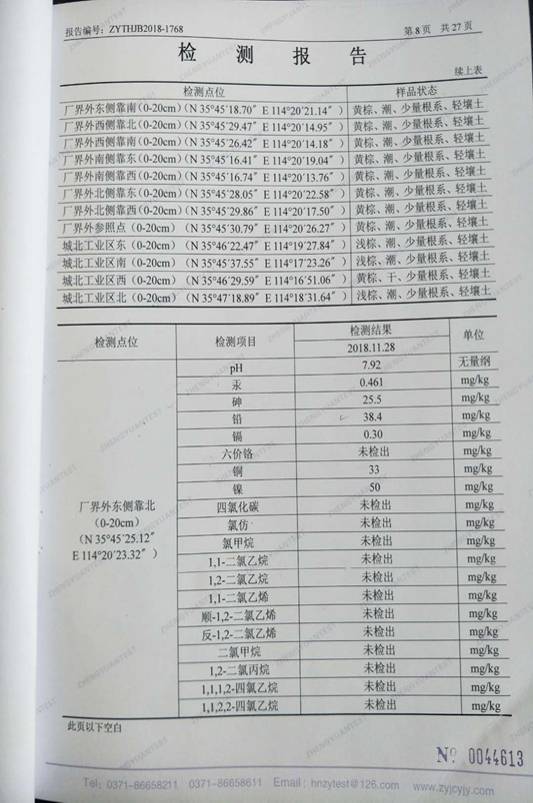 报告编号: ZYTHJB2018-1768 第8页 共27页
检测报告
续上表
检测点位 样品状态
厂界外东侧靠南(0-20cm)(N 35°45′18.70″ E 114°20′21.14″) 黄棕、潮、少量根系、轻壤土
厂界外西侧靠北(0-20cm)(N 35°45′29.47″ E 114°20′14.95″) 黄棕、潮、少量根系、轻壤土
厂界外西侧靠南(0-20cm)(N 35°45′26.42″ E 114°20′14.18″) 黄棕、潮、少量根系、轻壤土
厂界外南侧靠东(0-20cm)(N 35°45′16.41″ E 114°20′19.04″) 黄棕、潮、少量根系、轻壤土
厂界外南侧靠西(0-20cm)(N 35°45′16.74″ E 114°20′13.76″) 黄棕、潮、少量根系、轻壤土
厂界外北侧靠东(0-20cm)(N 35°45′28.05″ E 114°20′22.58″) 黄棕、潮、少量根系、轻壤土
厂界外北侧靠西(0-20cm)(N 35°45′29.86″ E 114°20′17.50″) 黄棕、潮、少量根系、轻壤土
厂界外参照点(0-20cm)(N 35°45′30.79″ E 114°20′26.27″) 黄棕、潮、少量根系、轻壤土
城北工业区东(0-20cm)(N 35°46′22.47″ E 114°19′27.84″) 浅棕、潮、少量根系、轻壤土
城北工业区南(0-20cm)(N 35°45′37.55″ E 114°17′23.26″) 浅棕、潮、少量根系、轻壤土
城北工业区西(0-20cm)(N 35°46′29.59″ E 114°16′51.06″) 黄棕、干、少量根系、轻壤土
城北工业区北(0-20cm)(N 35°47′18.89″ E 114°18′31.64″) 浅棕、潮、少量根系、轻壤土
检测点位 检测项目 检测结果 单位
2018.11.28
pH 7.92 无量纲
汞 0.461 mg/kg
砷 25.5 mg/kg
铅 38.4 mg/kg
镉 0.30 mg/kg
六价铬 未检出 mg/kg
铜 33 mg/kg
镍 50 mg/kg
厂界外东侧靠北
(0-20cm)
(N 35°45′25.12″
E 114°20′23.32″)
四氯化碳 未检出 mg/kg
氯仿 未检出 mg/kg
氯甲烷 未检出 mg/kg
1,1-二氯乙烷 未检出 mg/kg
1,2-二氯乙烷 未检出 mg/kg
1,1-二氯乙烯 未检出 mg/kg
顺-1,2-二氯乙烯 未检出 mg/kg
反-1,2-二氯乙烯 未检出 mg/kg
二氯甲烷 未检出 mg/kg
1,2-二氯丙烷 未检出 mg/kg
1,1,1,2-四氯乙烷 未检出 mg/kg
1,1,2,2-四氯乙烷 未检出 mg/kg
此页以下空白
№ 0044613
Tel: 0371-86658211 0371-86658611 Email: hnzytest@126.com www.zyjcyjy.com